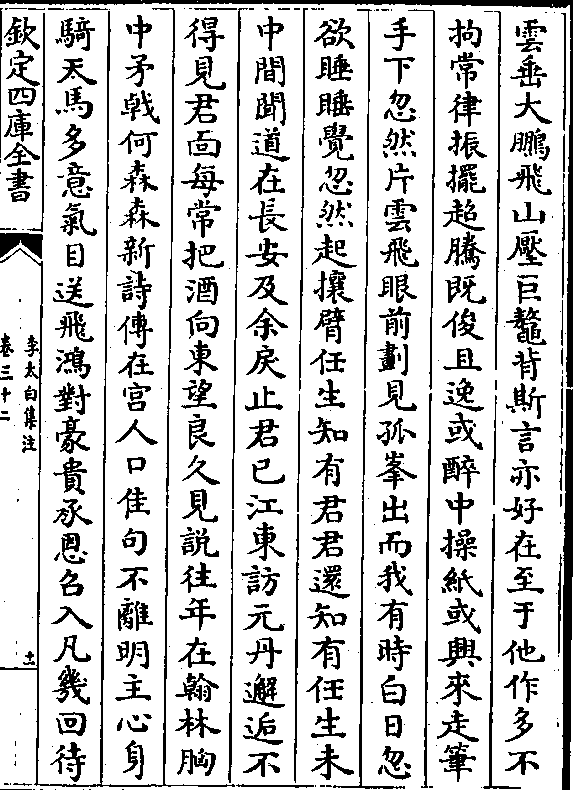 雲垂大鵬飛山壓巨鼇背斯言亦好在至于他作多不
拘常律振擺超騰既俊且逸或醉中操紙或興來走筆
手下忽然片雲飛眼前劃見孤峯出而我有時白日忽
欲睡睡覺忽然起攘臂任生知有君君還知有任生未
中間聞道在長安及余戾止君已江東訪元丹邂逅不
得見君面每常把酒向東望良久見説往年在翰林胸
中矛戟何森森新詩傳在宮人口佳句不離明主心身
騎天馬多意氣目送飛鴻對豪貴承恩召入凡幾回待
欽定四庫全書
李太白集注
卷三十二
十一